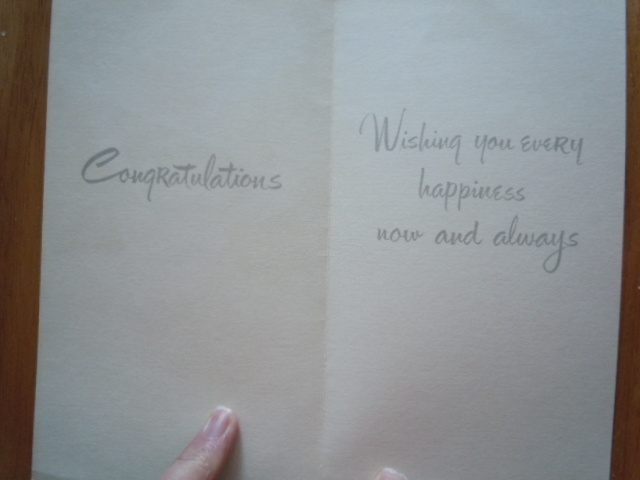 Congratulations
Wishing you every
happiness
now and always